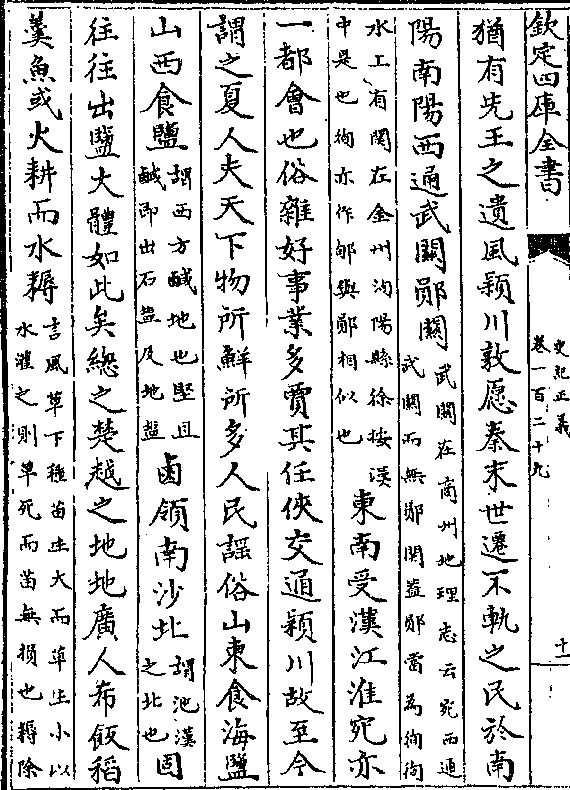 欽定四庫全書
史記正義
卷一百二十九
十
猶有先王之遺風潁川敦愿秦末世遷不軌之民於南
陽南陽西通武關鄖關
武關在商州地理志云宛西通
武關而無鄖關葢鄖當為徇徇
水上有関在金州洵陽縣徐按漢
中是也徇亦作郇與鄖相似也
東南受漢江淮宛亦
一都會也俗雜好事業多賈其任俠交通潁川故至今
謂之夏人夫天下物所鮮所多人民謡俗山東食海鹽
山西食鹽
謂西方鹹地也堅且
鹹即出石盐及地盐
鹵領南沙北
謂池漢
之北也
固
往往出鹽大體如此矣總之楚越之地地廣人希飯稻
羹魚或火耕而水耨
言風草下種苗生大而草生小以
水灌之則草死而苗無損也耨除